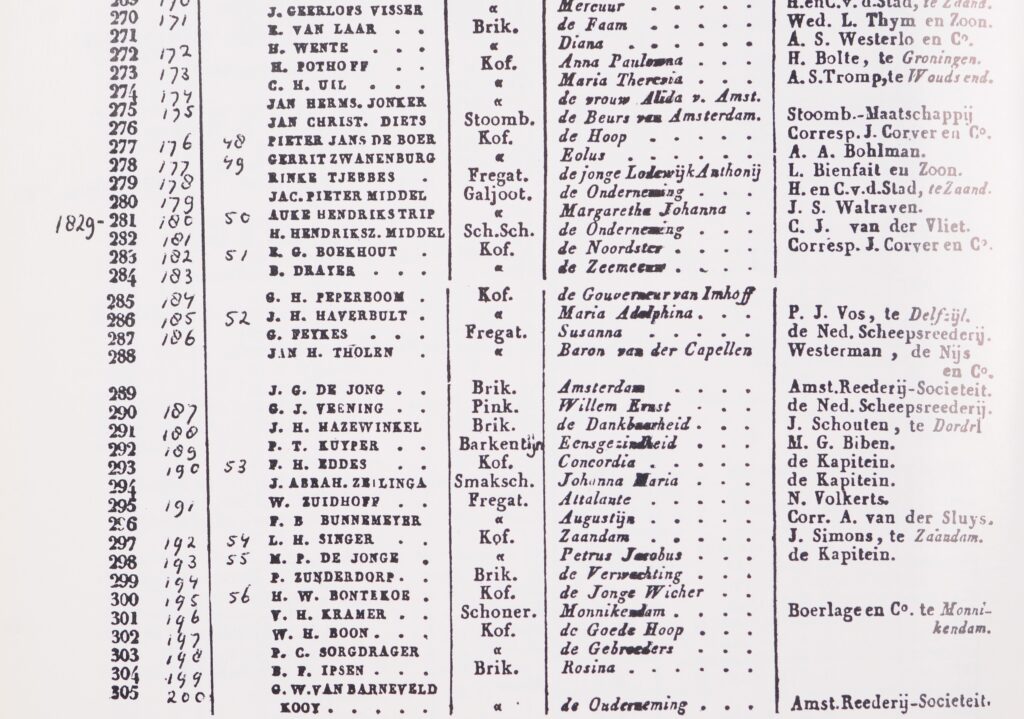 269 170
270 171 J. GEERLOFS VISSER « Mercuur H.en C.v.d.Stad, te Zaand.
271 E. VAN LAAR . . Brik. de Faam . . . . . Wed. L. Thym en Zoon.
272 172 H. WENTE . . . « Diana . . . . . . A. S. Westerlo en Co.
273 173 H. POTHOFF . . Kof. Anna Paulowna . . . H. Bolte, te Groningen.
274 174 C. H. UIL . . . « Maria Theresia . . . A.S.Tromp,te Woudsend.
275 175 JAN HERMS. JONKER « de vrouw Alida v. Amst.
276 JAN CHRIST. DIETS Stoomb. de Beurs van Amsterdam. Stoomb.-Maatschappij
277 176 48 PIETER JANS DE BOER Kof. de Hoop . . . . . Corresp. J. Corver en Co.
278 177 49 GERRIT ZWANENBURG « Eolus . . . . . . A. A. Bohlman.
279 178 RINKE TJEBBES . Fregat. de jonge Lodewijk Anthonij L. Bienfait en Zoon.
280 179 JAC. PIETER MIDDEL Galjoot. de Onderneming . . . H. en C.v.d.Stad, te Zaand.
1829- 281 180 50 AUKE HENDRIKS TRIP « Margaretha Johanna . J. S. Walraven.
282 181 H. HENDRIKSZ. MIDDEL Sch.Sch. de Onderneming . . . C. J. van der Vliet.
283 182 51 E. G. BOEKHOUT . Kof. de Noordster . . . . Corresp. J. Corver en Co.
284 183 B. DRAYER . . . « de Zeemeeuw . . . .
285 184 G. H. PEPERBOOM . Kof. de Gouverneur van Imhoff
286 185 52 J. H. HAVERBULT . « Maria Adolphina . . . P. J. Vos, te Delfzijl.
287 186 G. FEYKES . . . Fregat. Susanna . . . . . de Ned. Scheepsreederij.
288 JAN H. THOLEN . « Baron van der Capellen Westerman, de Nijs
en Co.
289 J. G. DE JONG . . Brik. Amsterdam . . . . Amst.Reederij-Societeit.
290 187 G. J. VEENING . . Pink. Willem Ernst . . . de Ned. Scheepsreederij.
291 188 J. H. HAZEWINKEL Brik. de Dankbaarheid . . . J. Schouten, te Dordr
292 189 P. T. KUYPER . . Barkentijn Eensgezindheid . . . M. G. Biben.
293 190 53 F. H. EDDES . . Kof. Concordia . . . . . de Kapitein.
294 J. ABRAH. ZEILINGA Smaksch. Johanna Maria . . . de Kapitein.
295 191 W. ZUIDHOFF . . Fregat. Attalante . . . . . N. Volkerts.
296 F. B BUNNEMEYER « Augustijn . . . . . Corr. A. van der Sluys.
297 192 54 L. H. SINGER . . Kof. Zaandam . . . . . J. Simons, te Zaandam.
298 193 55 M. P. DE JONGE . « Petrus Jacobus . . . de Kapitein.
299 194 P. ZUNDERDORP . . Brik. de Verwachting . . .
300 195 56 H. W. BONTEKOE . Kof. de Jonge Wicher . . .
301 196 V. H. KRAMER . . Schoner. Monnikendam . . . . Boerlage en Co. te Monni-
kendam.
302 197 W. H. BOON . . . Kof. de Goede Hoop . . .
303 198 P. C. SORGDRAGER « de Gebroeders . . . .
304 199 B. P. IPSEN . . . Brik. Rosina . . . . . .
305 200 G. W. VAN BARNEVELD
KOOY . . . . . « de Onderneming . . . Amst.Reederij-Societeit.